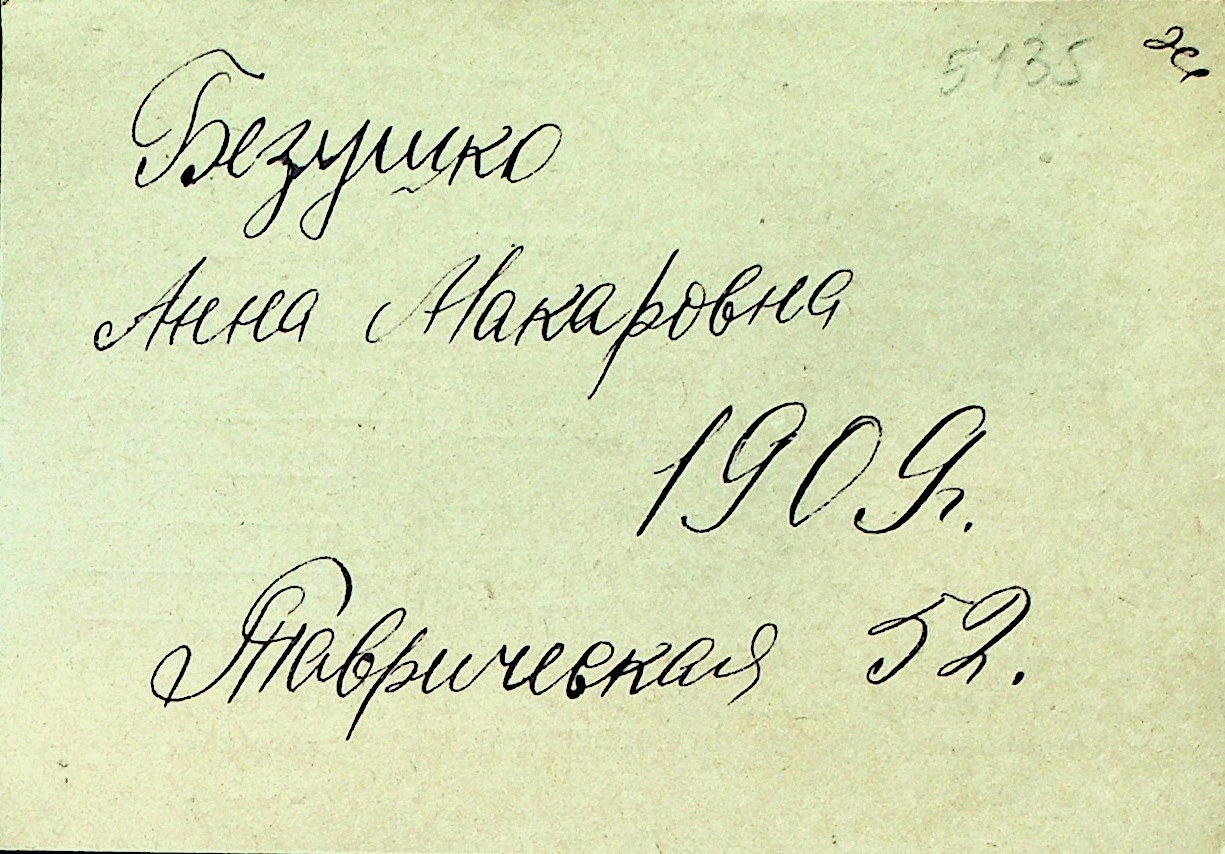 5135 ж
Безушко
Анна Макаровна
1909г.
Таврическая 52.